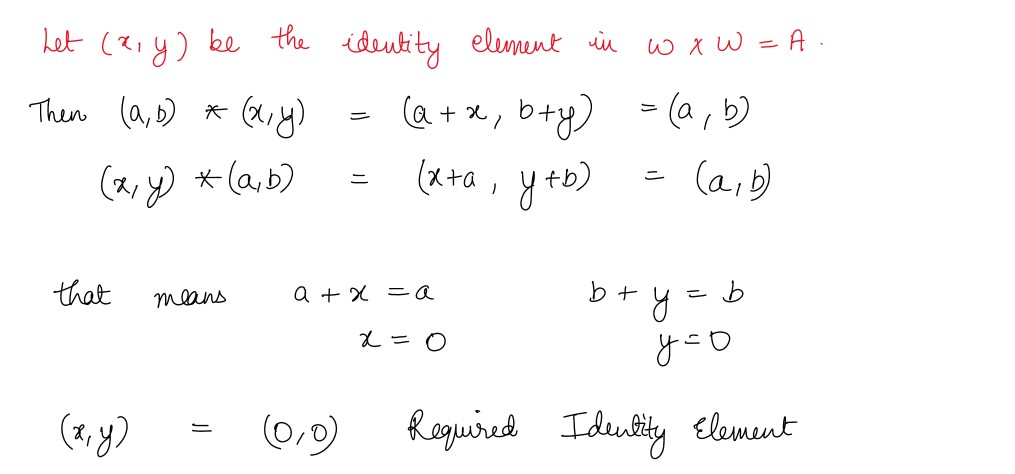 Let (x, y) be the identity element in w x W = A.
Then (a,b) * (x,y) = (a+x, b+y) = (a, b)
(x, y) * (a,b) = (x+a, y+b) = (a,b)
that means a + x = a b + y = b
x = 0 y = 0
(x,y) = (0,0) Required Identity Element